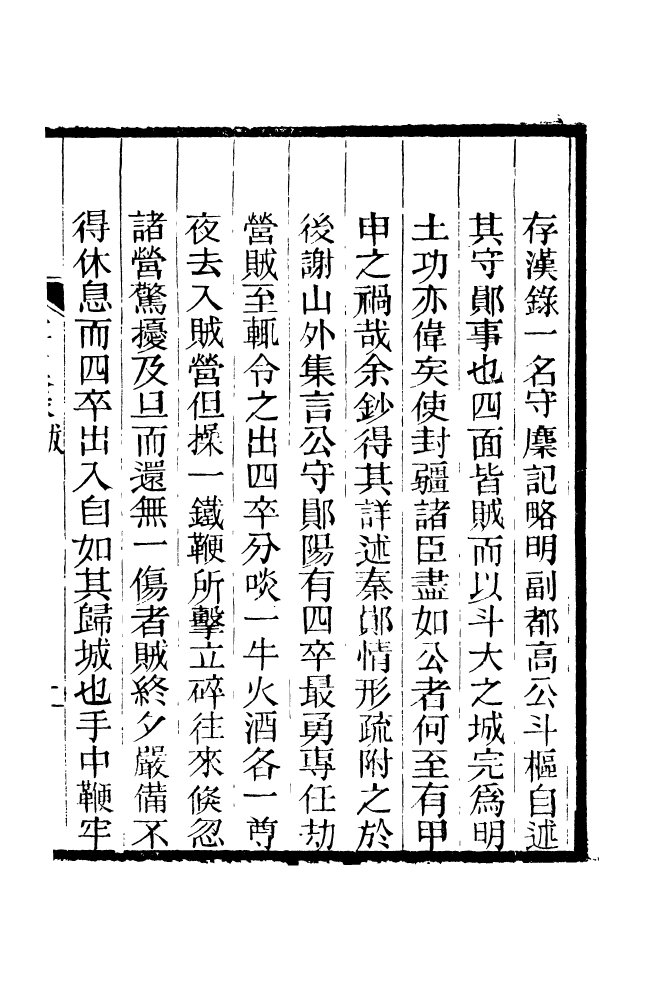 存漢錄一名守麇記略明副都高公斗樞自述
其守鄖事也四面皆賊而以斗大之城完為明
土功亦偉矣使封疆諸臣盡如公者何至有甲
申之禍哉余鈔得其詳述秦鄖情形疏附之於
後謝山外集言公守鄖陽有四卒最勇專任劫
營賊至輒令之出四卒分啖一牛火酒各一尊
夜去入賊營但操一鐵鞭所擊立碎往來倏忽
諸營驚擾及旦而還無一傷者賊終夕嚴備不
得休息而四卒出入自如其歸城也手中鞭牢